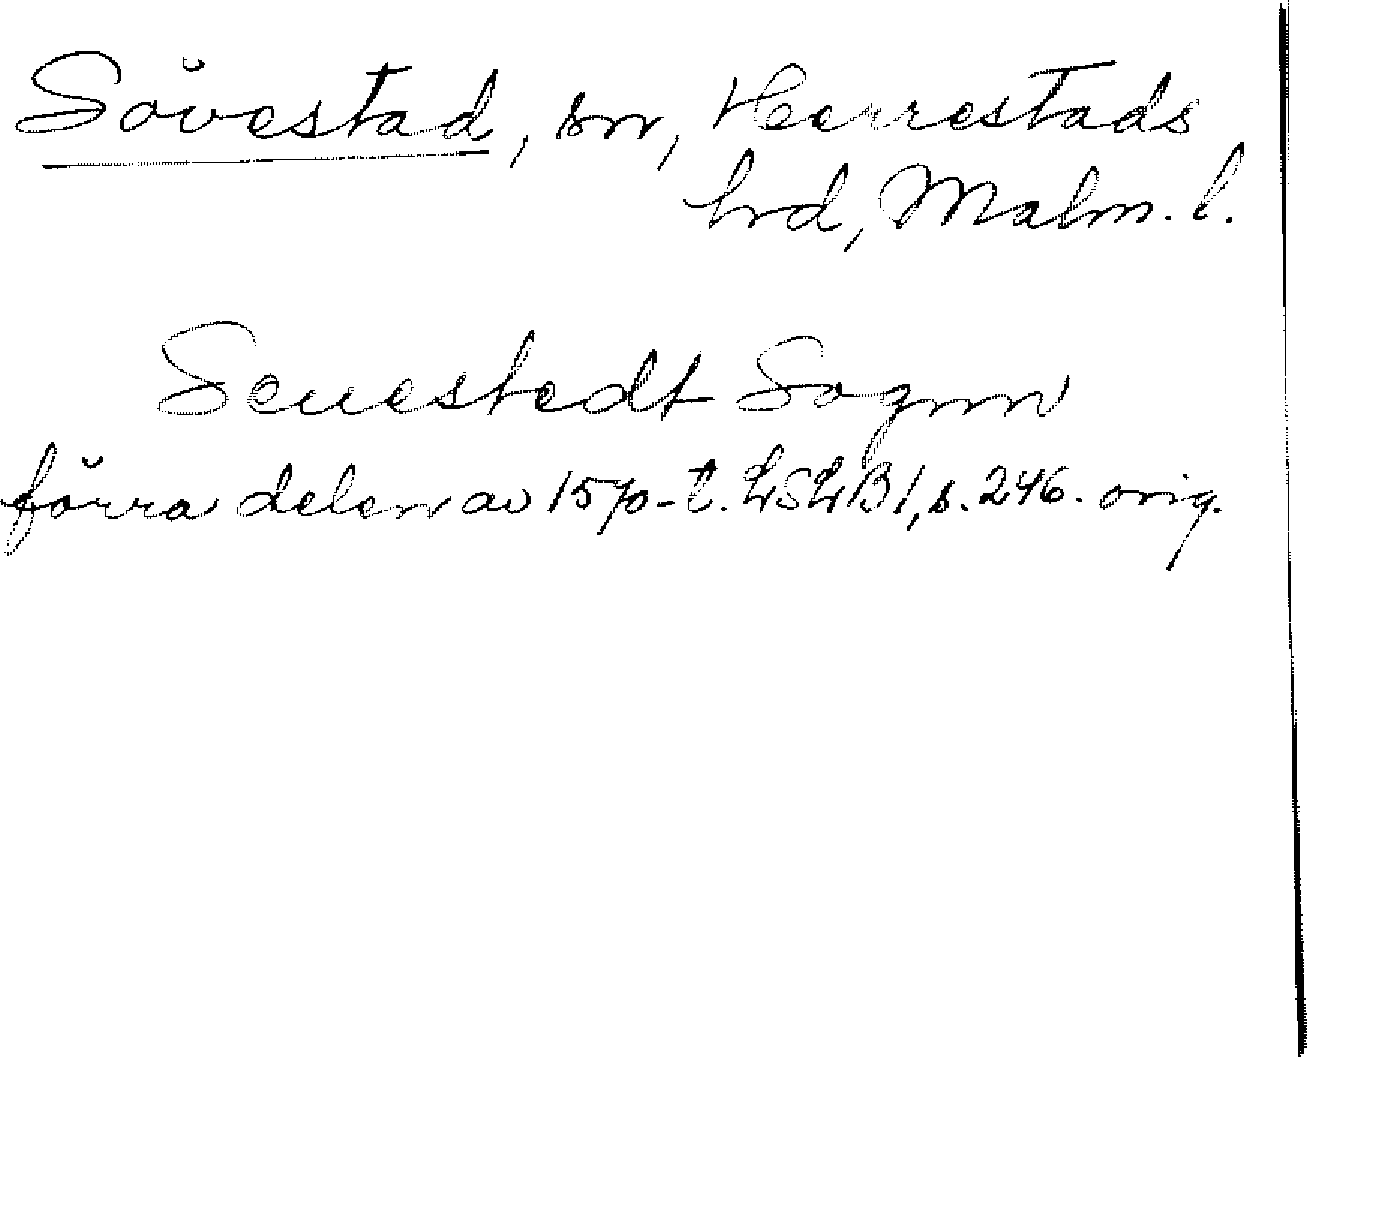 Sövestad, sn, Herrestads
hrd, Malm. l.
Seuestedt Sognn
förra delen av 1570-t. LSLB 1, s. 246. orig.